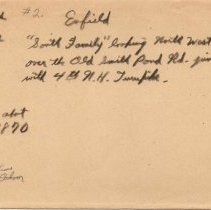 #2. Enfield
"South Family" looking North West
over the Old Smith Pond Rd. jun
with 4th N.H. Turnpike.
abot
1870